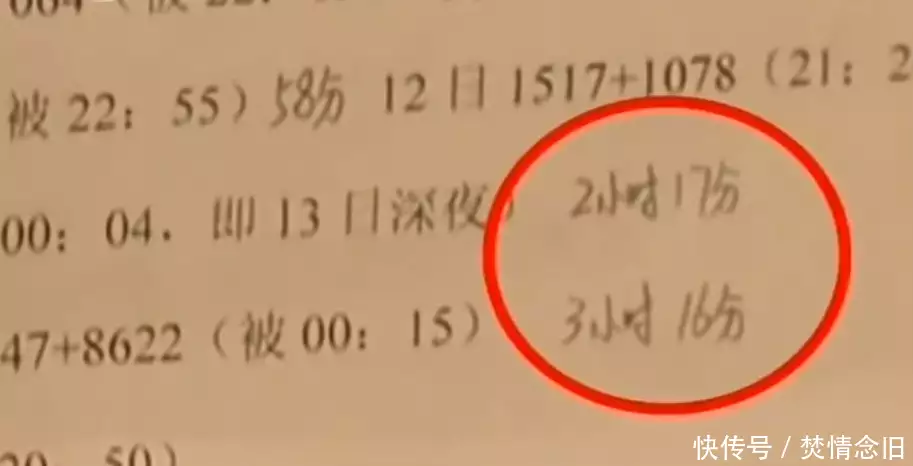 被 22：55）58分 12 日 1517+1078（21：2
00：04．即 13 日深夜） 2小时17分
47+8622（被 00：15） 3小时16分
20 50）
快传号 / 焚情念旧